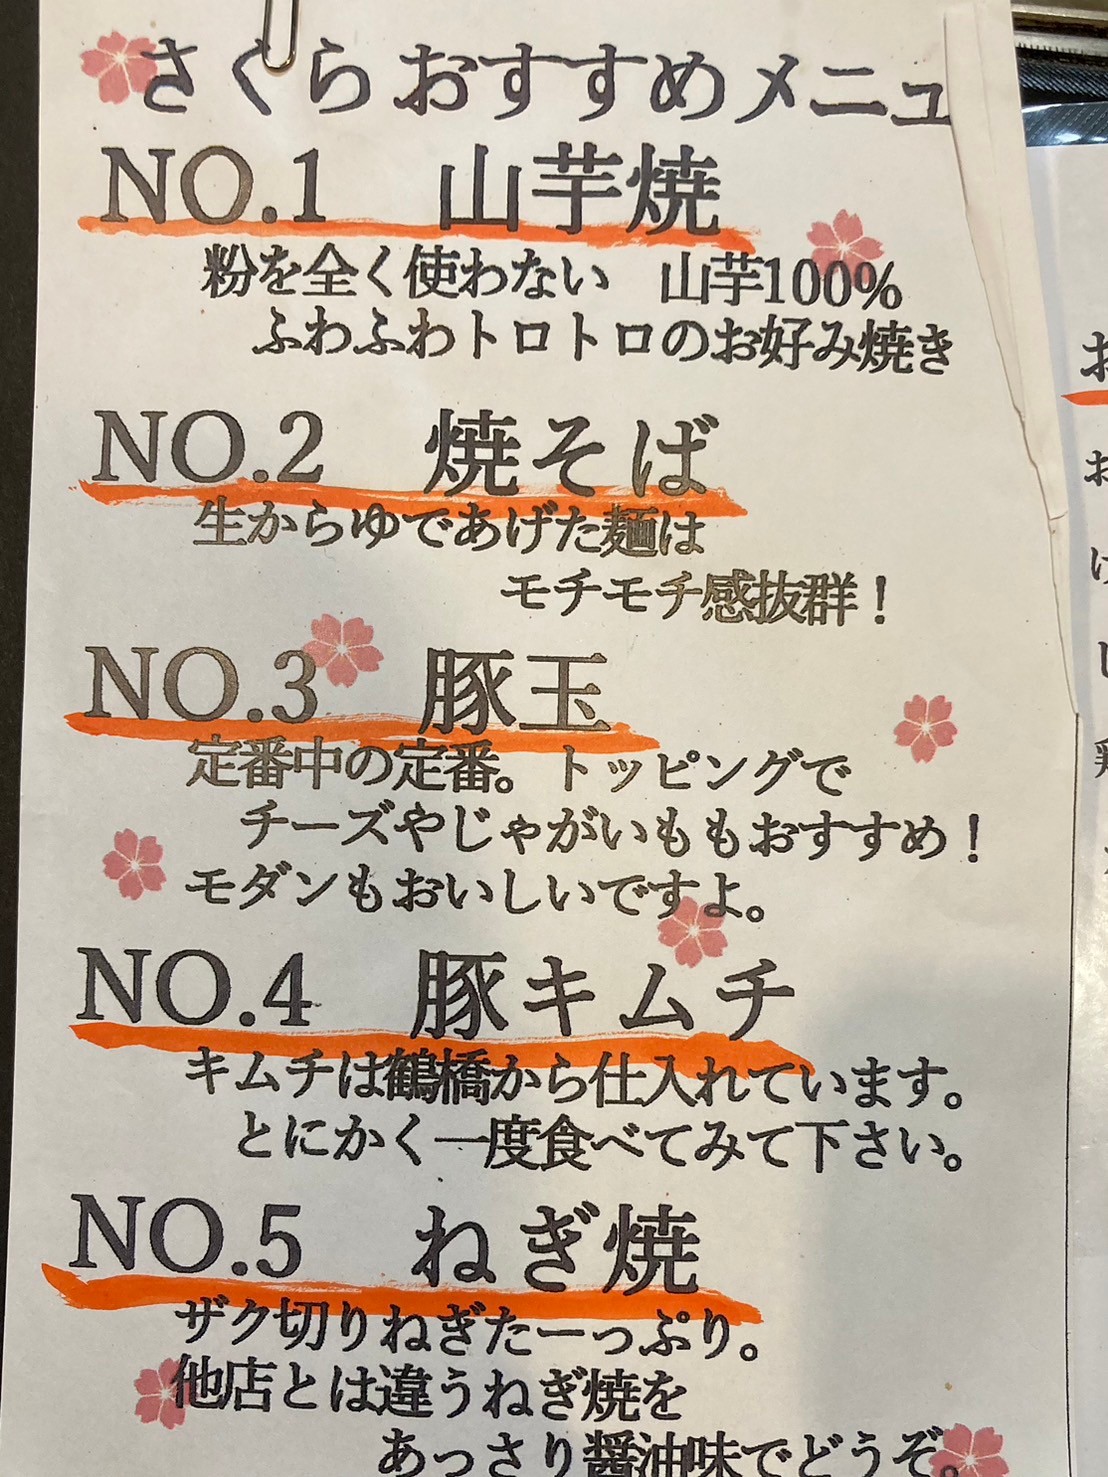 さくらおすすめメニュ
NO.1 山芋焼
粉を全く使わない 山芋100%
ふわふわトロトロのお好み焼き
NO.2 焼そば
生からゆであげた麺は
モチモチ感抜群!
NO.3 豚玉
定番中の定番。トッピングで
チーズやじゃがいももおすすめ!
モダンもおいしいですよ。
NO.4 豚キムチ
キムチは鶴橋から仕入れています。
とにかく一度食べてみて下さい。
NO.5 ねぎ焼
ザク切りねぎたーっぷり。
他店とは違うねぎ焼を
あっさり醤油味でどうぞ。